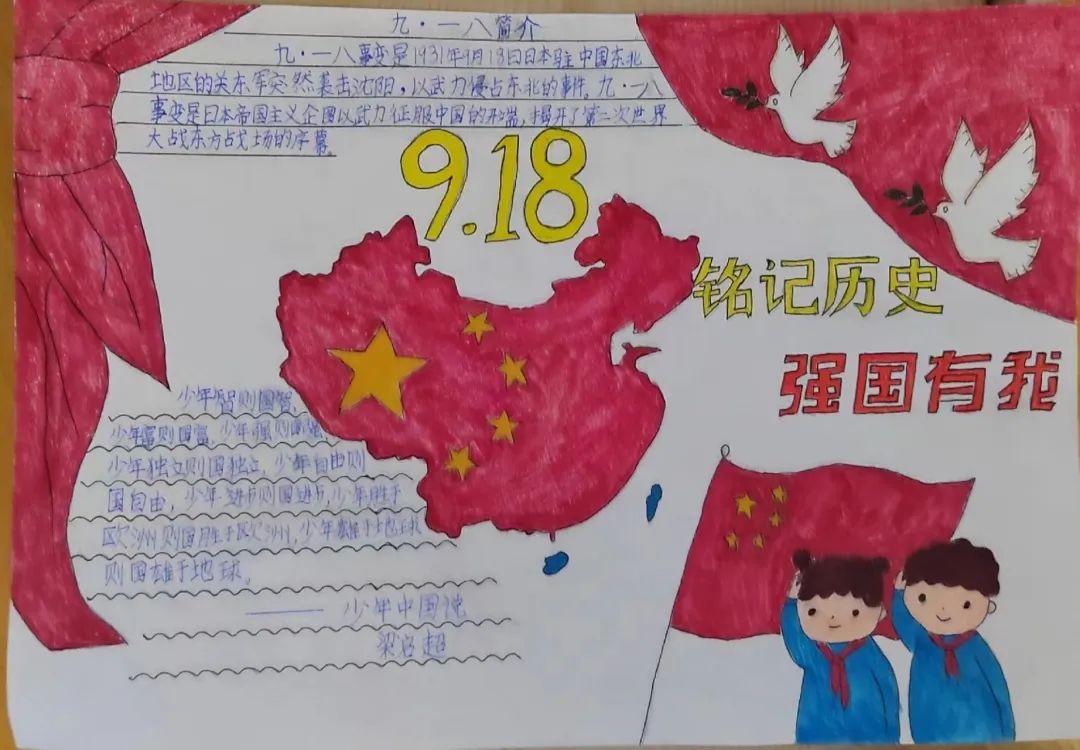 九·一八简介
九·一八事变是1931年9月18日日本驻中国东北
地区的关东军突然袭击沈阳，以武力侵占东北的事件。九·一八
事变是日本帝国主义企图以武力征服中国的开端，揭开了第二次世界
大战东方战场的序幕。
9.18
铭记历史
强国有我
少年智则国智
少年富则国富，少年强则国强，
少年独立则国独立，少年自由则
国自由，少年进步则国进步，少年胜于
欧洲则国胜于欧洲，少年雄于地球
则国雄于地球。
——少年中国说
梁启超